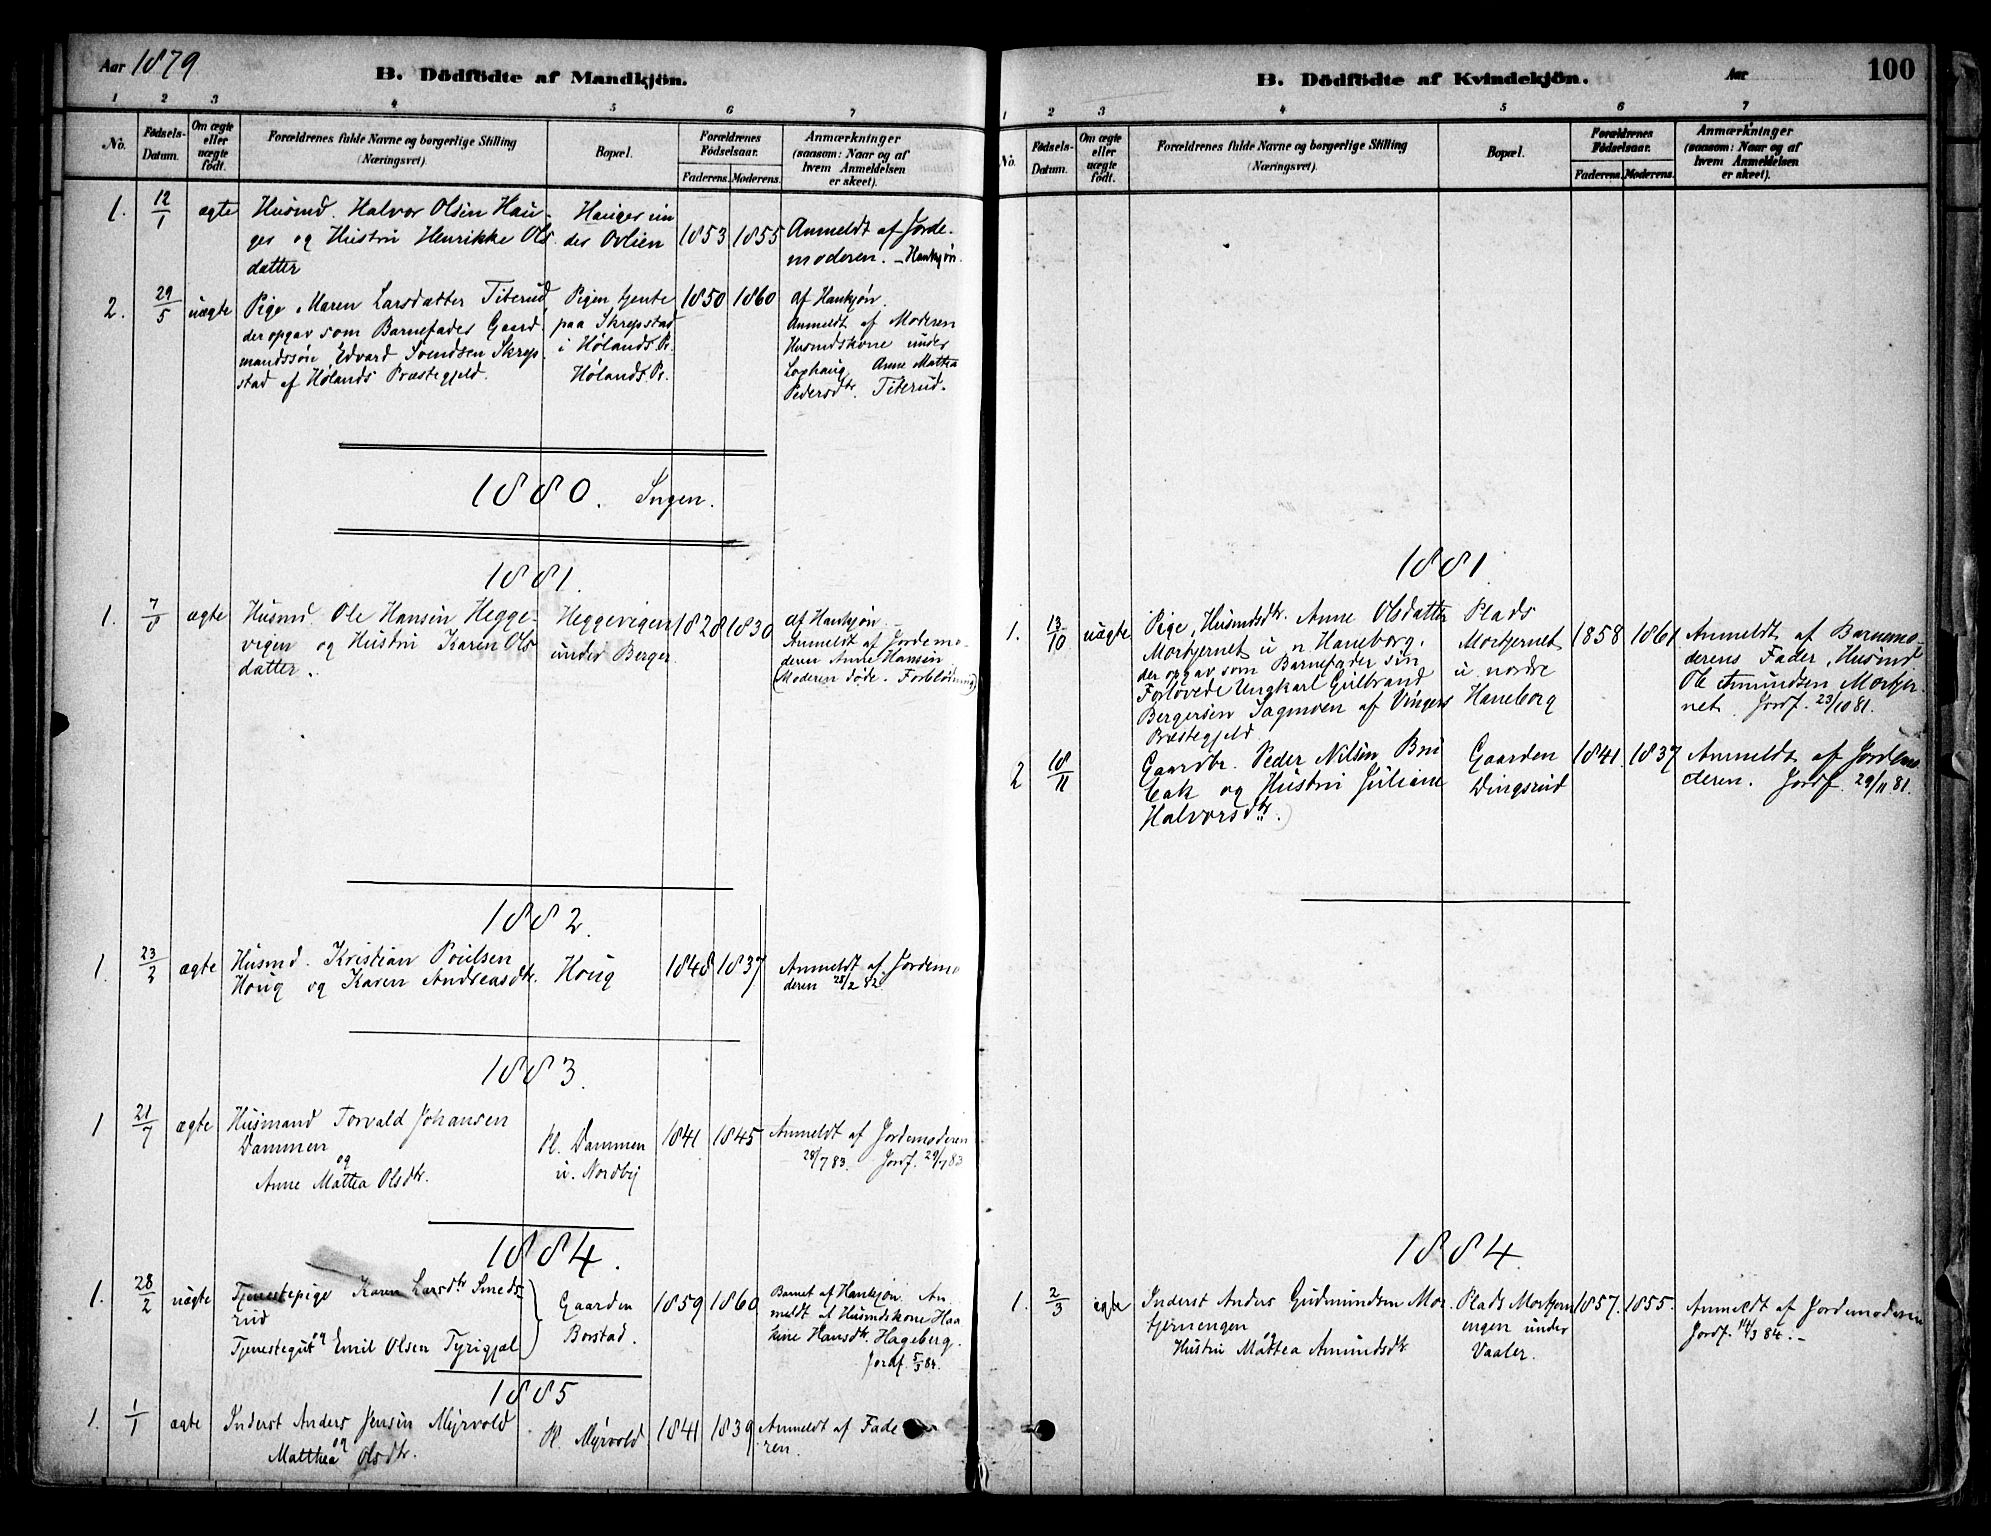 Aar 1879
B. Dödfödte af Mandkjön.
1 2 3 4 5 6 7
No.
Födsels-
Datum.
Om ægte
eller
uægte
födt.
Forældrenes fulde Navne og borgerlige Stilling
(Næringsvei).
Bopæl.
Forældrenes
Födselsaar.
Faderens. Moderens.
Anmærkninger
(saasom: Naar og af
hvem Anmeldelsen
er skeet).
1. 12/1 ægte Husmd. Halvor Olsen Hau-
ges og Hustru Henrikke Ols
datter
Hauges un
der Ovlien
1853 1855
Anmeldt af Jorde-
moderen. – Hankjøn.
2. 29/5 uægte Pige Maren Larsdatter Titerud,
der opgav som Barnefader Gaard
mandssøn Edvard Svendsen Skrep
stad af Hølands Præstegjeld.
Pigen tjente
paa Skrepstad
i Hølands Pr.
Hølands Pr.
1850 1860
af Hankjøn.
Anmeldt af Moderen
Husmdskone under
Lophaug Anne Mattea
Pedersdtr. Titerud.
1880. Ingen.
1881.
1. ægte Husmd Ole Hansen Hegge-
vigen og Hustru Karen Ols
datter.
Heggevigen
under Berger.
1828 1830
af Hankjøn. –
Anmeldt af Jordemo-
deren Anne Hansen
(Moderen døde. Forblødning)
1882.
1. 23/2 ægte Husmd. Kristian Poulsen
Houg og Karen Andreasdtr.
Houg
1848 1837
Anmeldt af Jordemo
deren 28/2 82.
1883.
1 21/7 ægte Husmand Torvald Johansen
Dammen
og
Anne Mattea Olsdtr.
Pl. Dammen
u. Nordby
1841 1845
Anmeldt af Jordemoderen
28/7 83. Jordf. 29/7 83
1884.
1. 28/2 uægte Tjenestepige Karen Larsdtr Smeds
rud
og
Tjenestegut Emil Olsen Tyrigjel
Gaarden
Borstad.
1859 1860
Barnet af Hankjøn. An
meldt af Husmdskone Haa
kine Hansdtr. Hageberg.
Jordf. 5/3 84.
1885
1. 1/1 ægte Inderst Anders Jensen Myrvold
og
Matthea Olsdtr.
Pl. Myrvold
1841 1839
Anmeldt af Fade
ren.
B. Dödfödte af Kvindekjön.
Aar
100
1 2 3 4 5 6 7
No.
Födsels-
Datum.
Om ægte
eller
uægte
födt.
Forældrenes fulde Navne og borgerlige Stilling
(Næringsvei).
Bopæl.
Forældrenes
Födselsaar.
Faderens. Moderens.
Anmærkninger
(saasom: Naar og af
hvem Anmeldelsen
er skeet).
1881.
1. 13/10 uægte Pige, Husmdsdtr. Anne Olsdatter
Mortjernet u n Haneborg.
der opgav som Barnefader sin
Forlovede Ungkarl Gulbrand
Bergersen Sagmoen af Vingers
Præstegjeld
Plads
Mortjernet
u. nordre
Haneborg
1858 1861
Anmeldt af Barnemo-
derens Fader, Husmd
Ole Amundsen Mortjer-
net. Jordf. 23/10 81.
2 18/11 Gaardbr. Peder Nilsen Bru
bak og Hustru Juliane
Halvorsdtr.
Gaarden
Dingsrud
1841. 1837
Anmeldt af Jordemo
deren. Jordf. 29/11 81.
1884.
1. 2/3 ægte Inderst Anders Gudmundsen Mor
tjernengen
og
Hustru Mattea Amundsdtr
Plads Mortjern
engen under
Vaaler.
1857. 1855.
Anmeldt af Jordemoderen
Jordf. 14/3 84. –